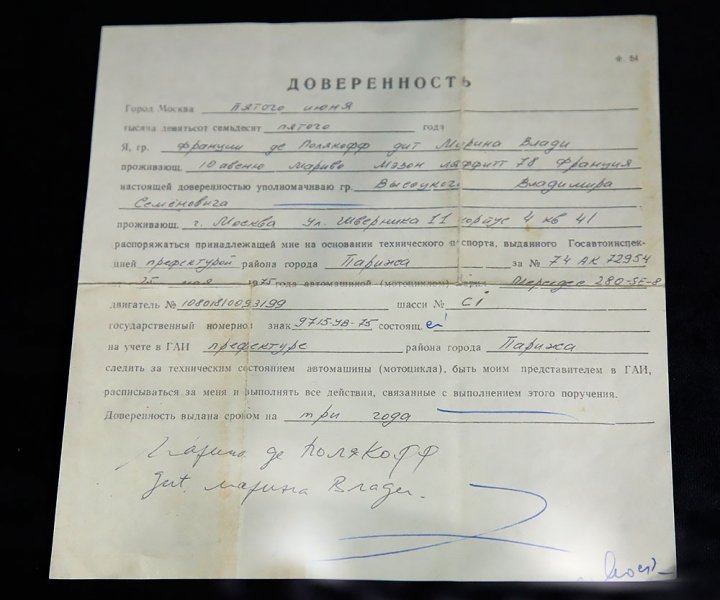 Ф. 54
ДОВЕРЕННОСТЬ
Город Москва пятого июня
тысяча девятьсот семьдесят пятого года
Я, гр. Франции де Полякофф дит Марина Влади
проживающ. 10 авеню Мариво Мэзон Ляффитт 78 Франция
настоящей доверенностью уполномачиваю гр. Высоцкого Владимира
Семёновича
проживающ. г. Москва ул. Шверника 11 корпус 4 кв 41
распоряжаться принадлежащей мне на основании технического паспорта, выданного Госавтоинспек-
цией префектурой района города Парижа за № 74 АК 72954
от 25 мая 1975 года автомашиной (мотоциклом) марки Мерседес 280-SE-8
двигатель № 10801810093199 шасси № Сi
государственный номерной знак 9715-УВ-75 состоящ. ей
на учете в ГАИ префектуре района города Парижа
следить за техническим состоянием автомашины (мотоцикла), быть моим представителем в ГАИ,
расписываться за меня и выполнять все действия, связанные с выполнением этого поручения.
Доверенность выдана сроком на три года
Марина де Полякофф
дит. Марина Влади.